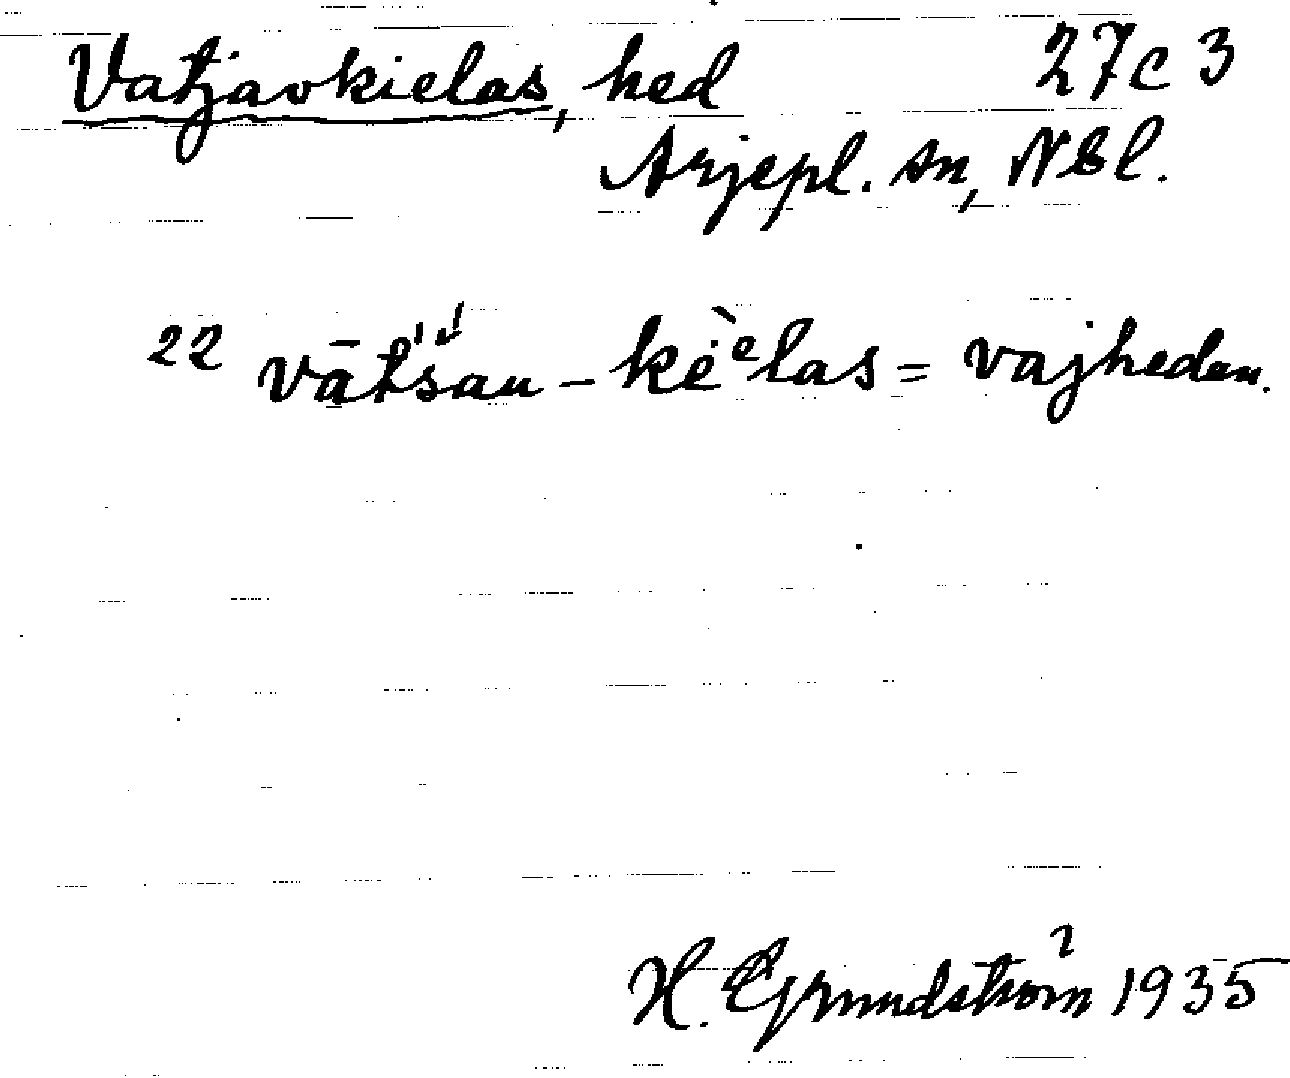 Vatjavkielas, hed 27c3
Arjepl. sn, Nbl.
22 vāt́'šau - kė̀ᵉlas = vajheden.
H. Grundström 1935